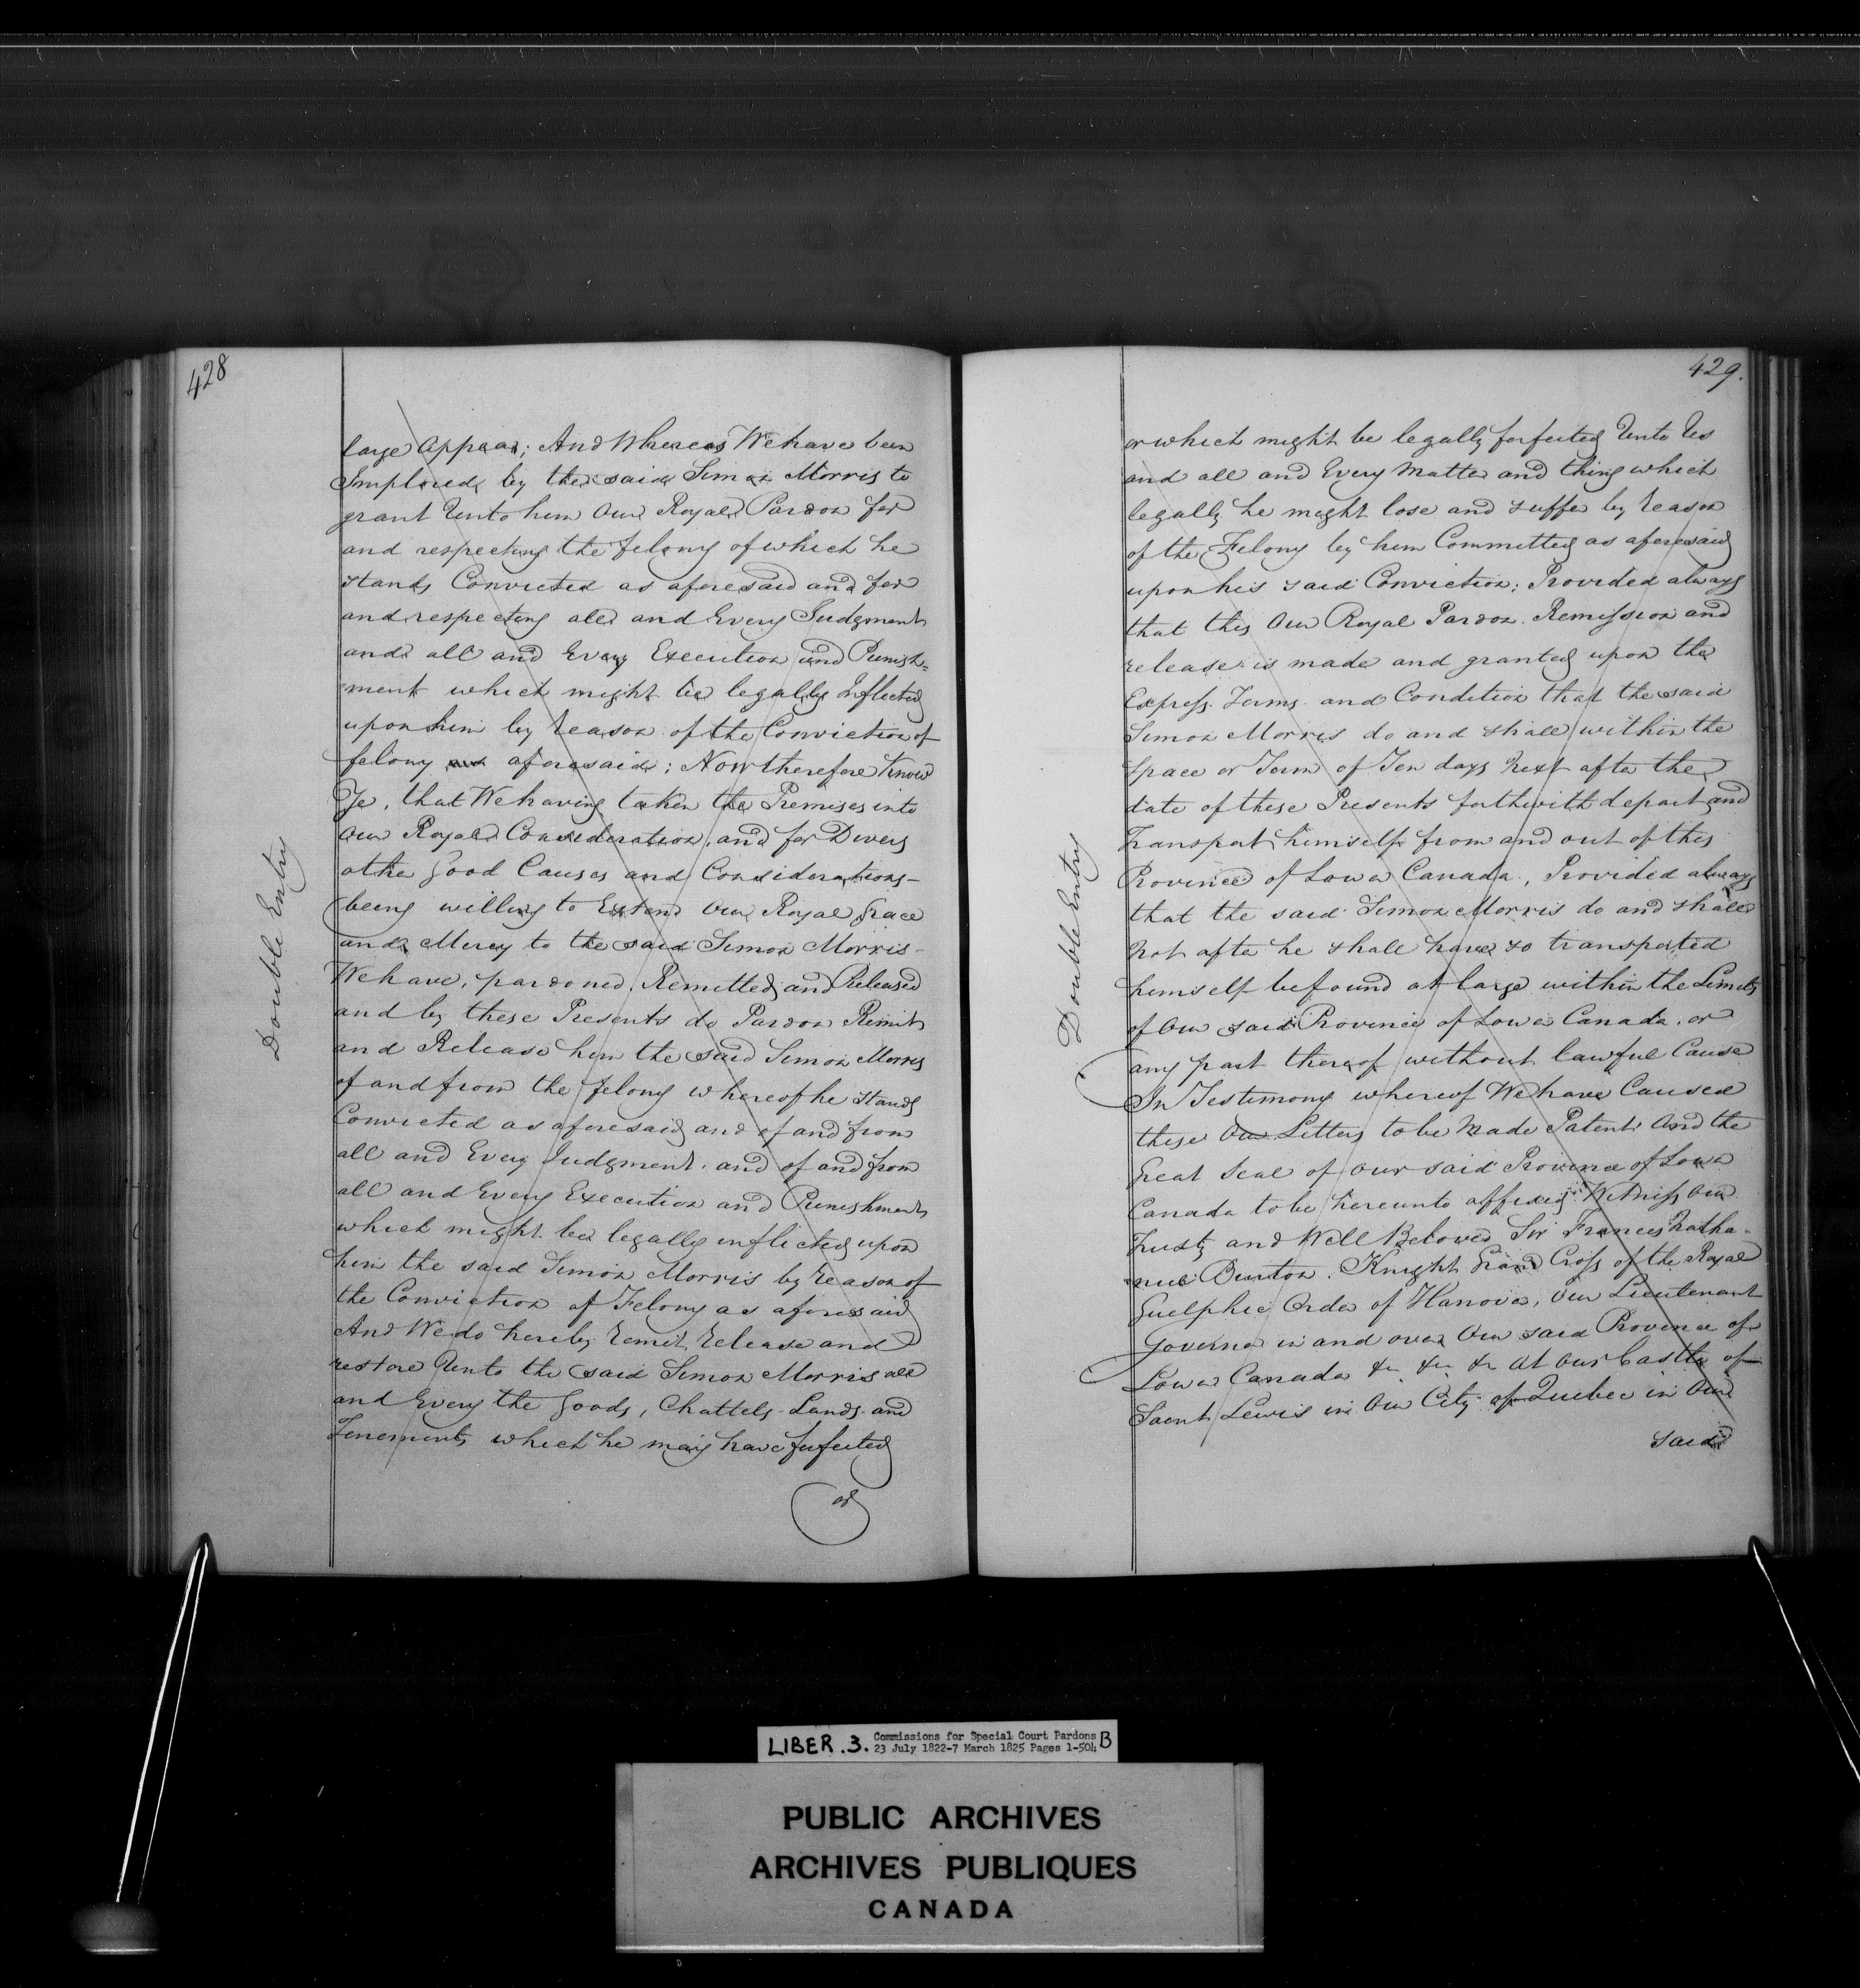 428
Double Entry
large Appear; And Whereas We have been
Implored by the said Simon Morris to
grant Unto him Our Royal Pardon for
and respecting the felony of which he
stands Convicted as aforesaid and for
and respecting all and Every Judgment
and all and Every Execution and Punish=
=ment which might be legally Inflicted
upon him by reason of the Conviction of
felony aforesaid; Now therefore Know
Ye, that We having taken the Premises into
Our Royal Consideration, and for Divers
other Good Causes and Considerations-
being willing to Extend Our Royal Grace
and Mercy to the said Simon Morris-
We have, pardoned, Remitted and Released
and by these Presents do Pardon Remit
and Release him the said Simon Morris
of and from the felony whereof he stands
Convicted as aforesaid and of and from
all and Every Judgment, and of and from
all and Every Execution and Punishment
which might be legally inflicted upon
him the said Simon Morris by reason of
the Conviction of Felony as aforesaid
And We do hereby remit, release and
restore Unto the said Simon Morris all
and Every the Goods, Chattels Lands and
Tenements which he may have forfeited
or
429.
Double Entry
or which might be legally forfeited Unto Us
and all and Every Matter and thing which
legally he might lose and suffer by reason
of the Felony by him Committed as aforesaid
upon his said Conviction; Provided always
that this Our Royal Pardon. Remission and
release is made and granted upon the
Express Terms and Condition that the said
Simon Morris do and shall within the
space or Term of Ten days next after the
date of these Presents forthwith depart and
Transport himself from and out of this
Province of Lower Canada, Provided always
that the said Simon Morris do and shall
not after he shall have so transported
himself be found at large within the Limits
of Our said Province of Lower Canada, or
any part thereof without lawful Cause
In Testimony whereof We have Caused
these Our Letters to be Made Patent And the
Great Seal of our said Province of Lower
Canada to be hereunto affixed: Witness Our
Trusty and Well Beloved Sir Francis Natha-
niel Burton. Knight Grand Cross of the Royal
Guelphic Order of Hanover, Our Lieutenant
Governor in and over Our said Province of
Lower Canada &c &c &c At our Castle of
Saint Lewis in Our City of Quebec in Our
said
LIBER .3. Commissions for Special Court Pardons B
23 July 1822-7 March 1825 Pages 1-504
PUBLIC ARCHIVES
ARCHIVES PUBLIQUES
CANADA